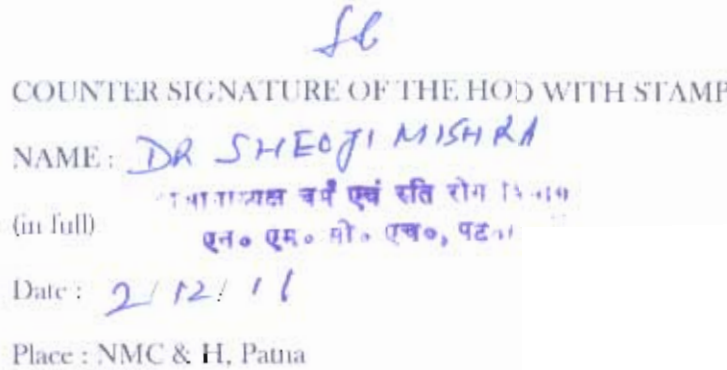 COUNTER SIGNATURE OF THE HOD WITH STAMP
NAME : DR SHEOJI MISHRA
चर्म एवं रति रोग
(in full)
एन० एम० सी० एच०, पटना
Date : 2/12/11
Place : NMC & H, Patna